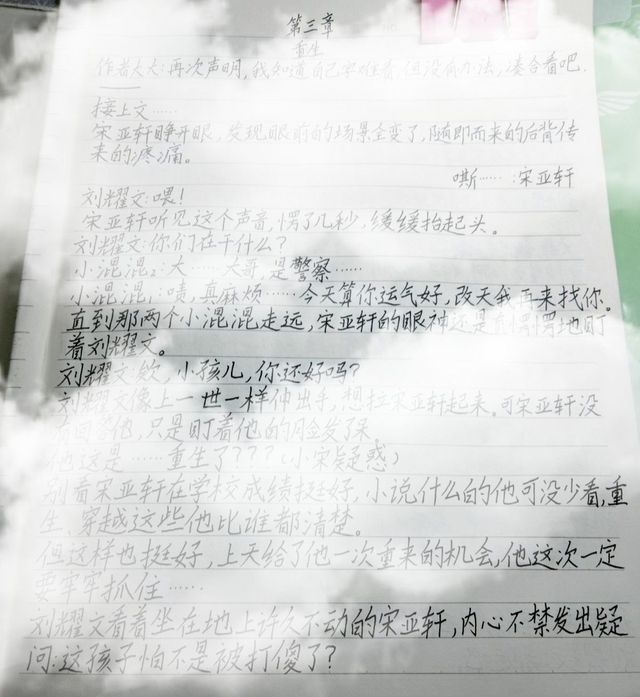 第三章
重生
作者大大:再次声明,我知道自己字难看,但没有办法,凑合看吧.
接上文……
宋亚轩睁开眼,发现眼前的场景全变了,随即而来的后背传
来的疼痛。
嘶……:宋亚轩
刘耀文:喂!
宋亚轩听见这个声音,愣了几秒,缓缓抬起头。
刘耀文:你们在干什么?
小混混2:大……大哥,是警察……
小混混1:啧,真麻烦……今天算你运气好,改天我再来找你。
直到那两个小混混走远,宋亚轩的眼神还是直愣愣地盯
着刘耀文。
刘耀文:欸,小孩儿,你还好吗?
刘耀文像上一世一样伸出手,想拉宋亚轩起来。可宋亚轩没
有回答他,只是盯着他的脸发了呆
他这是……重生了???(小宋疑惑)
别看宋亚轩在学校成绩挺好,小说什么的他可没少看,重
生、穿越这些他比谁都清楚。
但这样也挺好,上天给了他一次重来的机会,他这次一定
要牢牢抓住……
刘耀文看着坐在地上许久不动的宋亚轩,内心不禁发出疑
问:这孩子怕不是被打傻了?